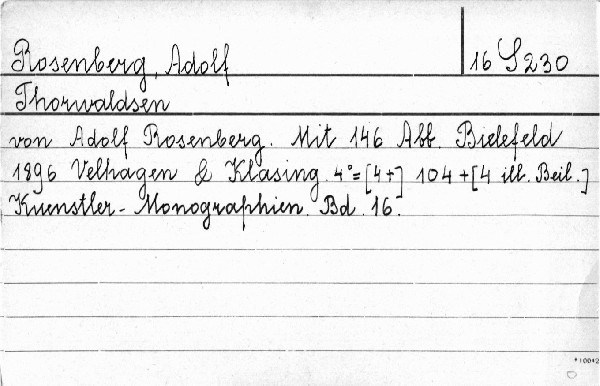 Rosenberg, Adolf 16 S 230
Thorwaldsen
von Adolf Rosenberg. Mit 146 Abb. Bielefeld
1896 Velhagen & Klasing 4°=[4+] 104+[4 ill. Beil.]
Kuenstler-Monographien. Bd. 16.
*10042